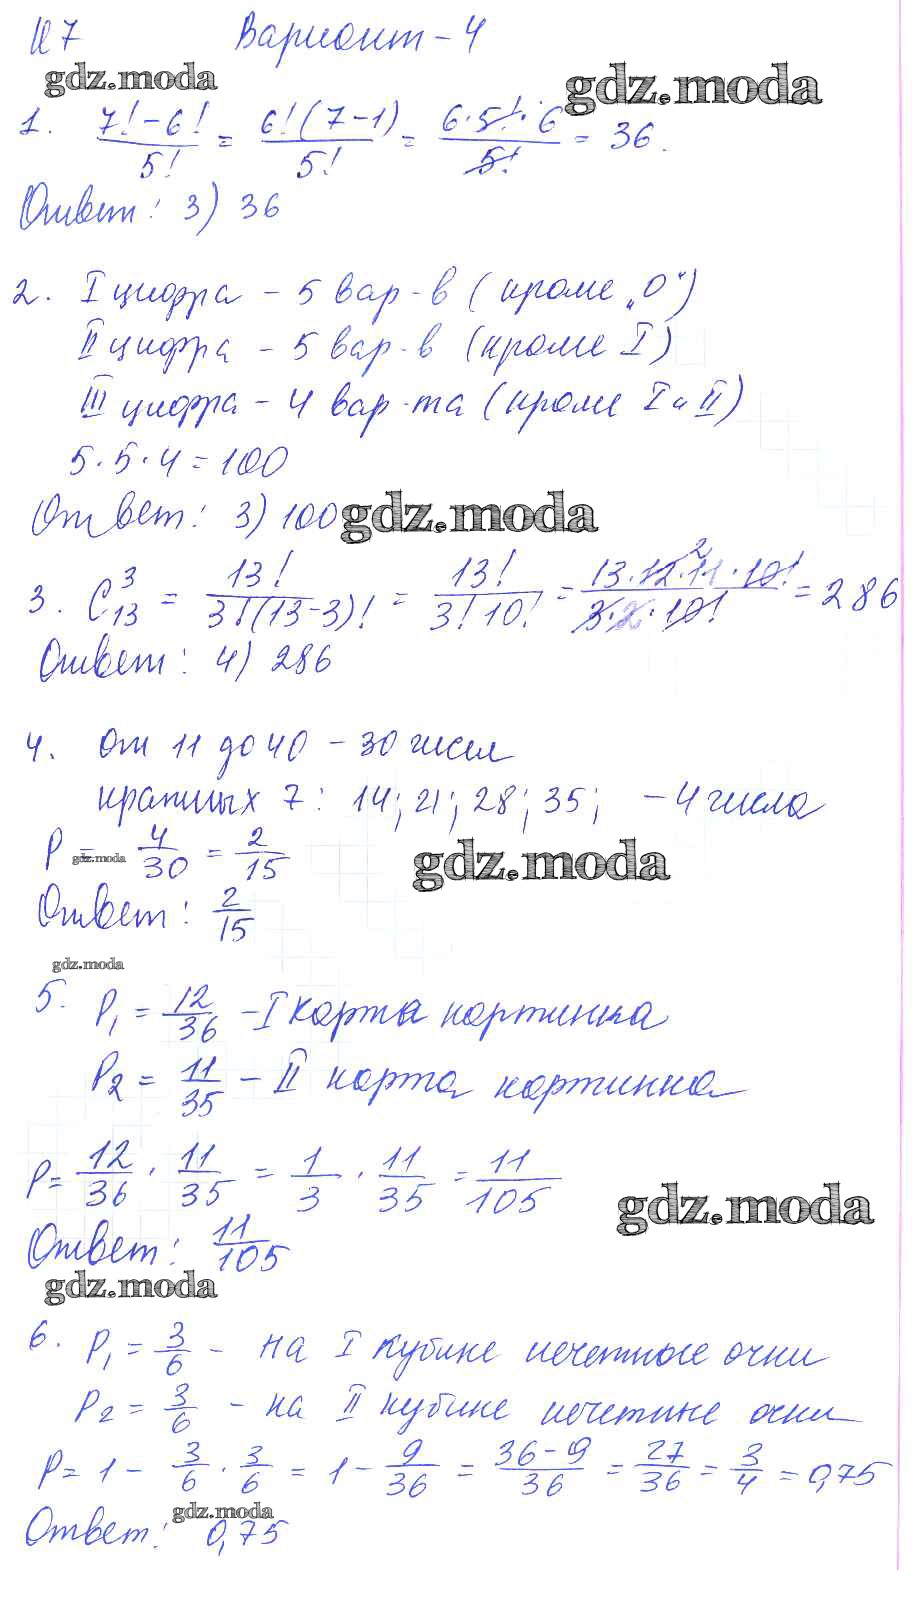 И7 Вариант-4
gdz.moda gdz.moda
1. (7!-6!)/5! = 6!(7-1)/5! = 6·5!·6/5! = 36.
Ответ: 3) 36
2. I цифра - 5 вар-в (кроме „0“)
II цифра - 5 вар-в (кроме I)
III цифра - 4 вар-та (кроме I и II)
5·5·4=100
Ответ: 3) 100 gdz.moda
3. C₁₃³ = 13!/3!(13-3)! = 13!/3!10! = 13·12·11·10!/3·2·10! = 286
Ответ: 4) 286
4. От 11 до 40 - 30 чисел
кратных 7: 14; 21; 28; 35; - 4 числа
P = 4/30 = 2/15
gdz.moda gdz.moda
Ответ: 2/15
gdz.moda
5. P₁ = 12/36 - I карта картинка
P₂ = 11/35 - II карта картинка
P = 12/36 · 11/35 = 1/3 · 11/35 = 11/105
gdz.moda
Ответ: 11/105
gdz.moda
6. P₁ = 3/6 - на I кубике нечетные очки
P₂ = 3/6 - на II кубике нечетные очки
P = 1 - 3/6 · 3/6 = 1 - 9/36 = (36-9)/36 = 27/36 = 3/4 = 0,75
gdz.moda
Ответ: 0,75